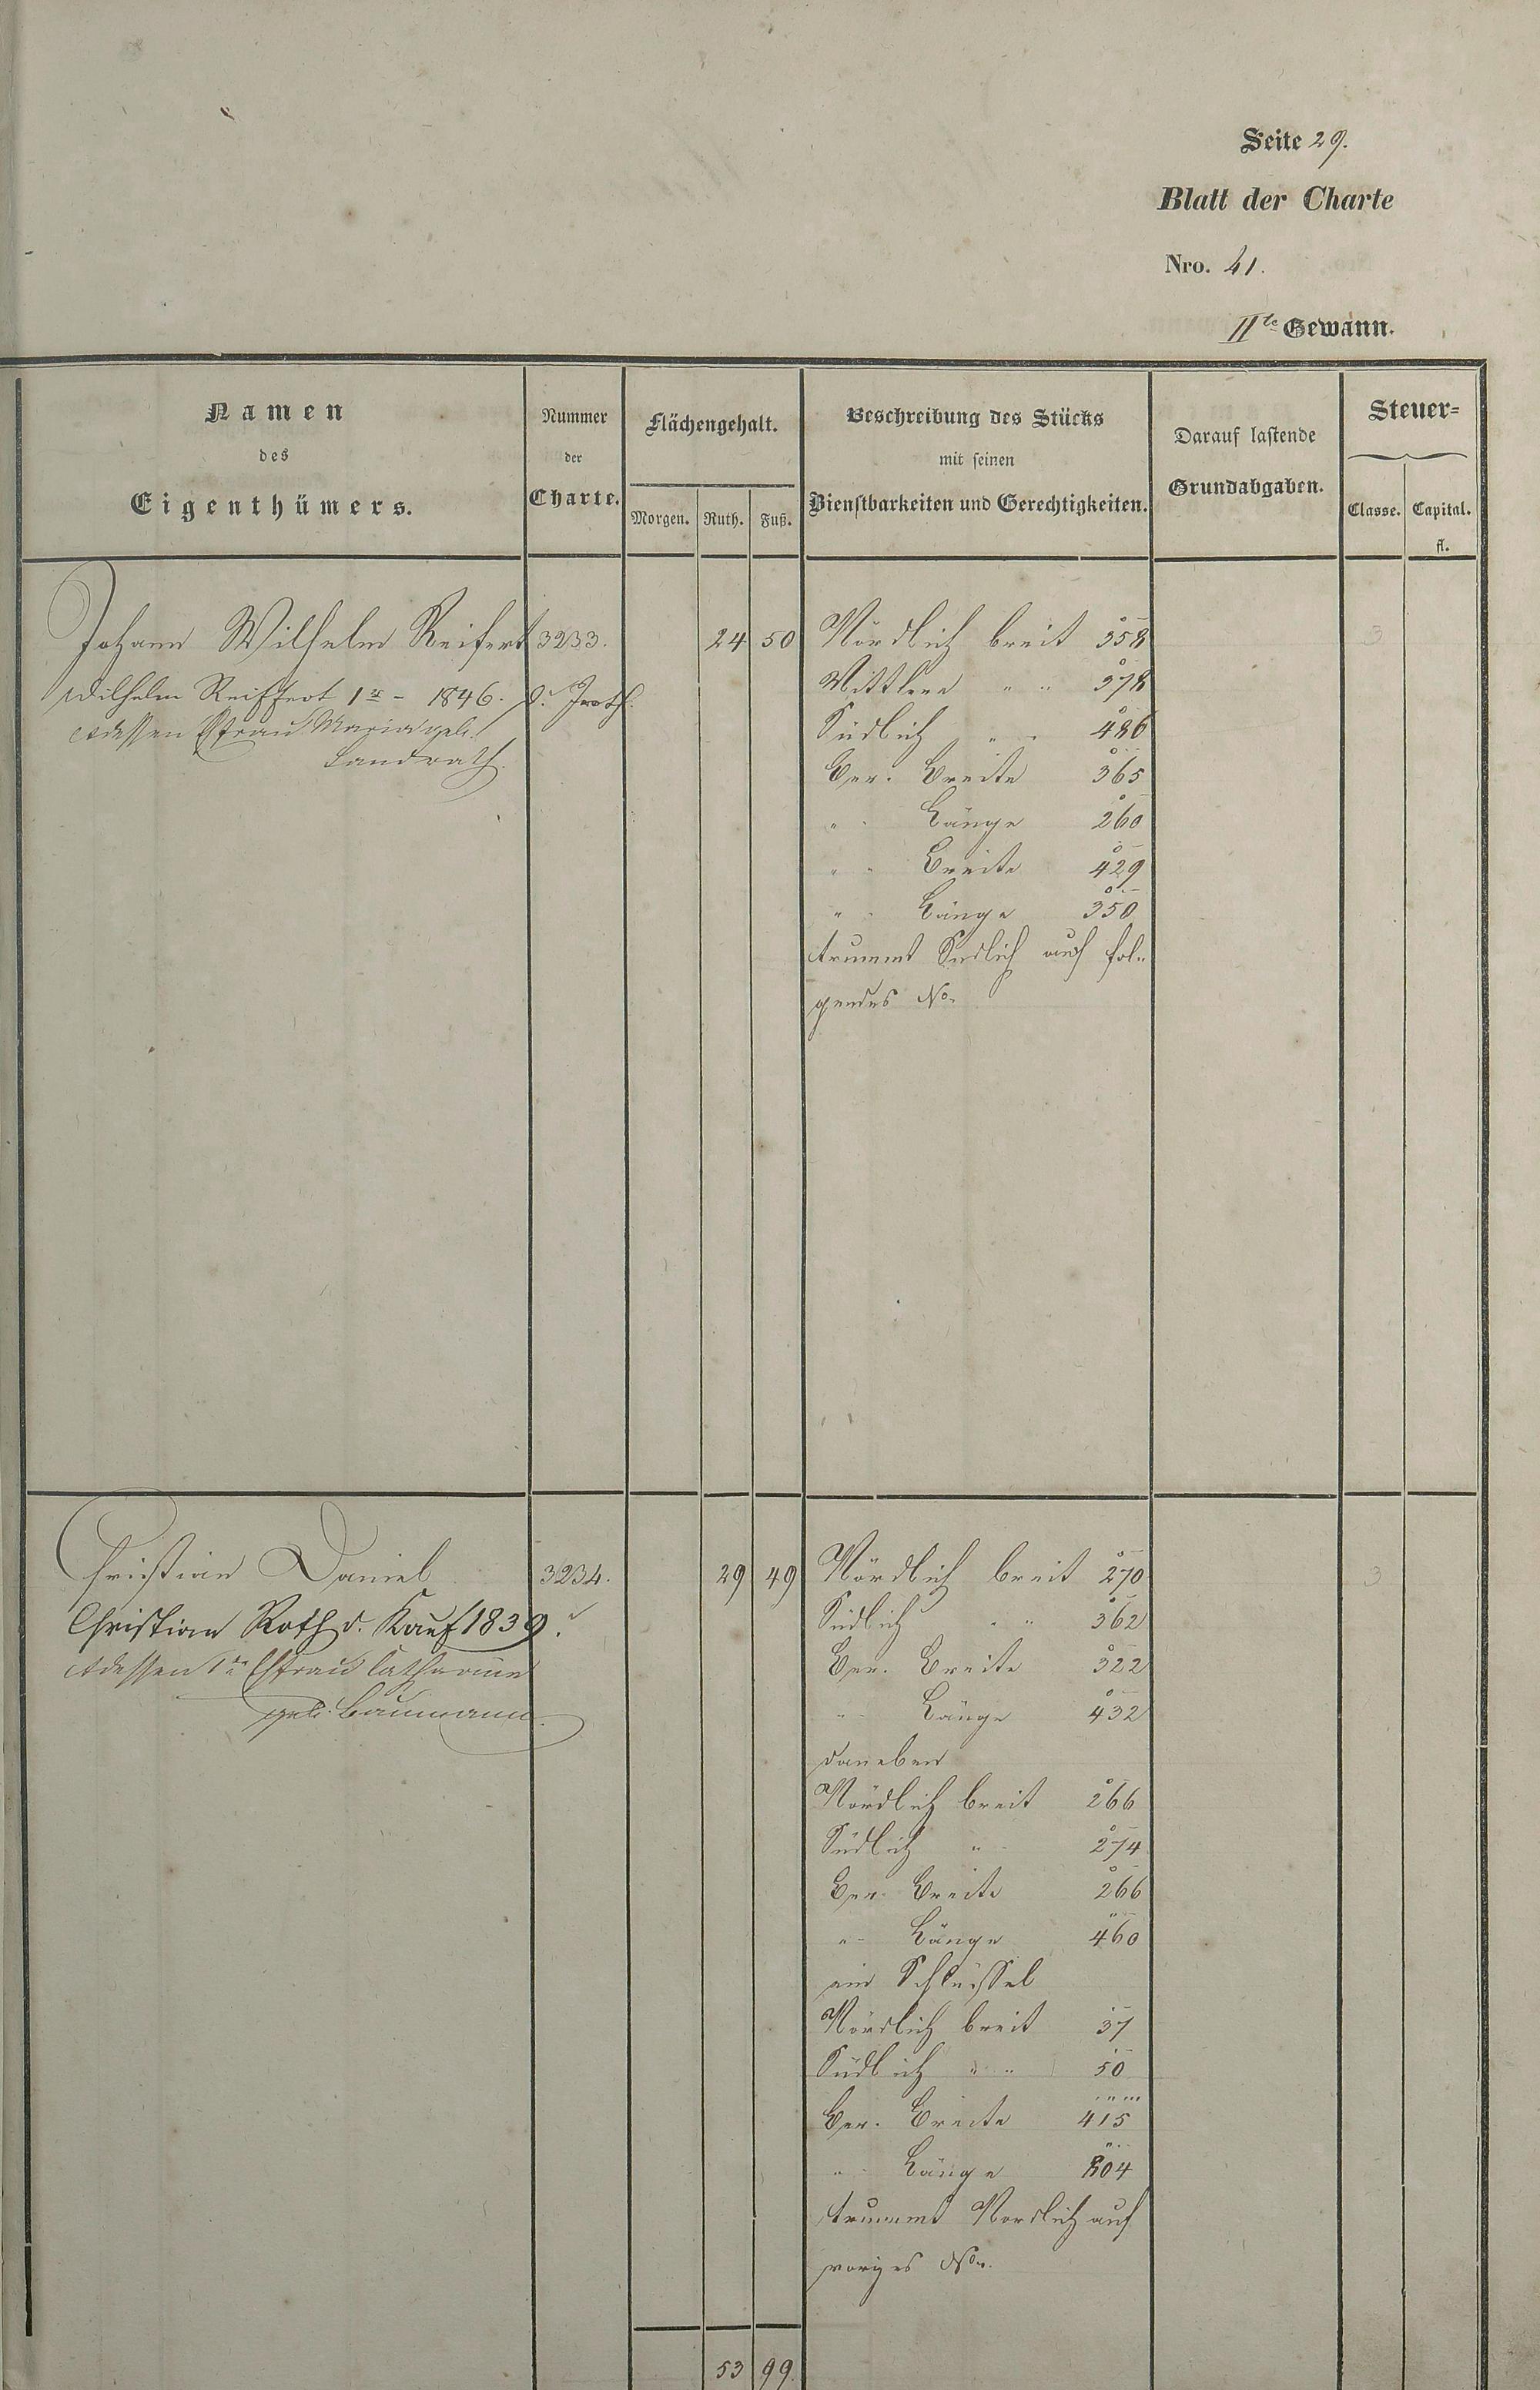 Seite 29.
Blatt der Charte
Nro. 41.
IIte Gewann.
Namen
des
Eigenthümers.
Nummer
der
Charte.
Flächengehalt.
Morgen. Ruth. Fuß.
Beschreibung des Stücks
mit seinen
Dienstbarkeiten und Gerechtigkeiten.
Darauf lastende
Grundabgaben.
Steuer-
Classe. Capital.
fl.
Johann Wilhelm Reifert 3233. 24 50 Nördlich breit 358 3
Wilhelm Reiffert 1r - 1846.
Mittlere " " 378
dessen Efrau Maria geb.
Südlich " " 486
Landrath.
Ger. Breite 365
" " Länge 260
" " Breite 429
" " Länge 350
trummt Südlich auf fol-
gendes No.
Christian Daniel 3234. 29 49 Nördlich breit 270 3
Christian Roth d. Kauf 1839.
Südlich " " 362
dessen Efrau Catharine
Ger. Breite 322
geb. Baumann.
" " Länge 432
daneben
Nördlich breit 266
Südlich " 274
Ger. Breite 266
" " Länge 460
ein Schlüssel
Nördlich breit 37
Südlich " " 50
Ger. Breite 415
" " Länge 804
trummt Nordlich auf
voriges No.
53 99.